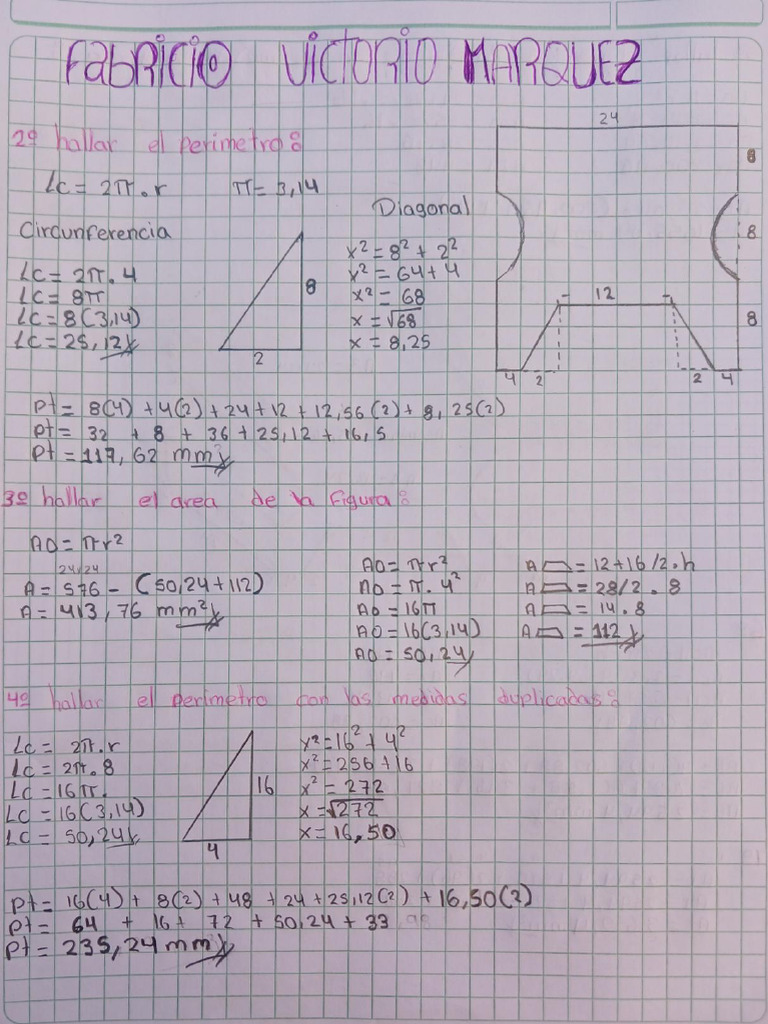 FABRICIO VICTORIO MARQUEZ
2º hallar el perimetro:
Lc = 2π.r π = 3,14
Circunferencia
Lc = 2π.4
Lc = 8π
Lc = 8(3,14)
Lc = 25,12
8
2
Diagonal
x² = 8² + 2²
x² = 64 + 4
x² = 68
x = √68
x = 8,25
24
8
8
8
12
4 2 2 4
Pt = 8(4) + 4(2) + 24 + 12 + 12,56(2) + 8,25(2)
Pt = 32 + 8 + 36 + 25,12 + 16,5
Pt = 117,62 mm
3º hallar el area de la figura:
AO = πr²
24.24
A = 576 - (50,24 + 112)
A = 413,76 mm²
AO = πr²
AO = π.4²
AO = 16π
AO = 16(3,14)
AO = 50,24
A = 12+16/2.h
A = 28/2 . 8
A = 14.8
A = 112
4º hallar el perimetro con las medidas duplicadas:
Lc = 2π.r
Lc = 2π.8
Lc = 16π
Lc = 16(3,14)
Lc = 50,24
16
4
x² = 16² + 4²
x² = 256 + 16
x² = 272
x = √272
x = 16,50
Pt = 16(4) + 8(2) + 48 + 24 + 25,12(2) + 16,50(2)
Pt = 64 + 16 + 72 + 50,24 + 33
Pt = 235,24 mm